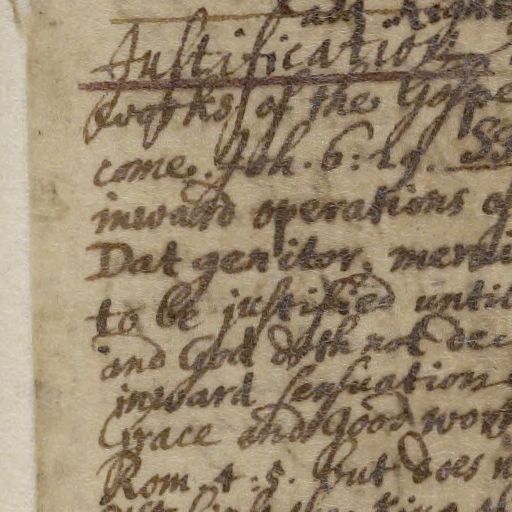 Justification
works of the Gospe
come. Joh. 6: 29.
inward operations of
Dat genitor,
to be justified until
and God doth not dec
inward sensation
Grace and good work
Rom. 4: 5. but does n